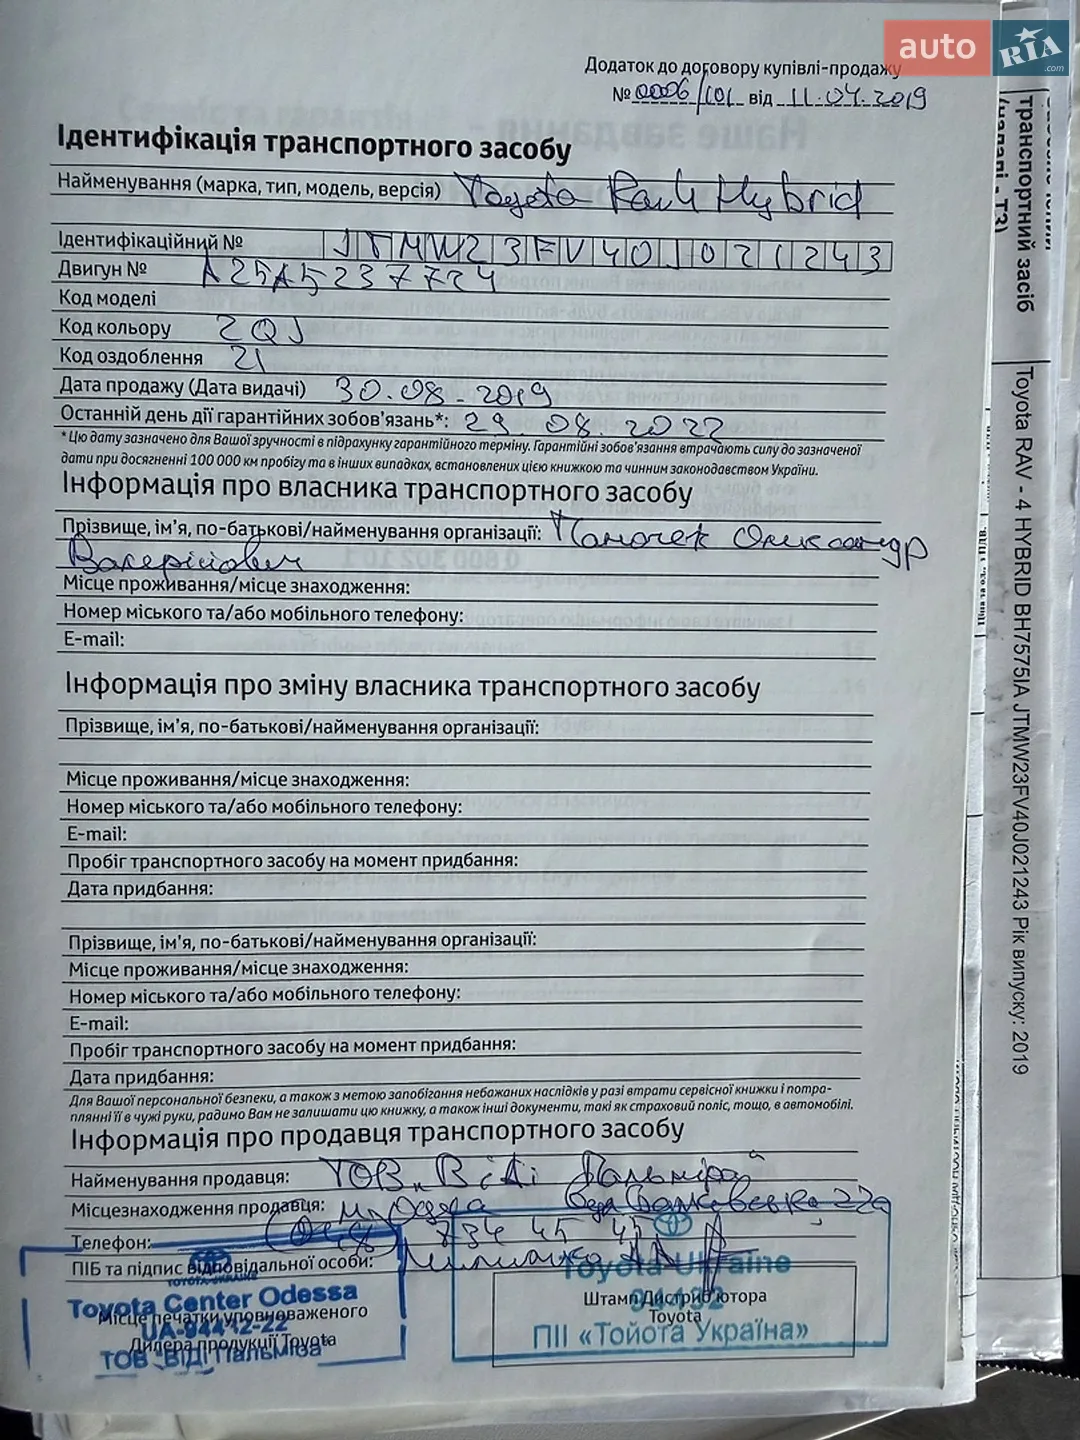 auto RIA .com
Додаток до договору купівлі-продажу
№ 0006/101 від 11.04.2019
Ідентифікація транспортного засобу
Найменування (марка, тип, модель, версія) Toyota Rav4 Hybrid
Ідентифікаційний № JTMW23FV40J021243
Двигун № A25A5237724
Код моделі
Код кольору 2QJ
Код оздоблення 21
Дата продажу (Дата видачі) 30.08.2019
Останній день дії гарантійних зобов'язань*: 29.08.2022
* Цю дату зазначено для Вашої зручності в підрахунку гарантійного терміну. Гарантійні зобов'язання втрачають силу до зазначеної
дати при досягненні 100 000 км пробігу та в інших випадках, встановлених цією книжкою та чинним законодавством України.
Інформація про власника транспортного засобу
Прізвище, ім'я, по-батькові/найменування організації: Олександр
Валерійович
Місце проживання/місце знаходження:
Номер міського та/або мобільного телефону:
E-mail:
Інформація про зміну власника транспортного засобу
Прізвище, ім'я, по-батькові/найменування організації:
Місце проживання/місце знаходження:
Номер міського та/або мобільного телефону:
E-mail:
Пробіг транспортного засобу на момент придбання:
Дата придбання:
Прізвище, ім'я, по-батькові/найменування організації:
Місце проживання/місце знаходження:
Номер міського та/або мобільного телефону:
E-mail:
Пробіг транспортного засобу на момент придбання:
Дата придбання:
Для Вашої персональної безпеки, а також з метою запобігання небажаних наслідків у разі втрати сервісної книжки і потра-
плянні її в чужі руки, радимо Вам не залишати цю книжку, а також інші документи, такі як страховий поліс, тощо, в автомобілі.
Інформація про продавця транспортного засобу
Найменування продавця: ТОВ "ВіДі Пальміра"
Місцезнаходження продавця: м. Одеса 22а
Телефон: (048) 734 45 45
ПІБ та підпис відповідальної особи:
TOYOTA-UKRAINE
Toyota Center Odessa
UA-94412-22
ТОВ "ВІДІ Пальміра"
Місце печатки уповноваженого
Дилера продукції Toyota
Toyota Ukraine
94432
ПІІ «Тойота Україна»
Штамп Дистриб'ютора
Toyota
транспортний засіб
(надалі - ТЗ)
Toyota RAV - 4 HYBRID BH7575IA JTMW23FV40J021243 Рік випуску: 2019